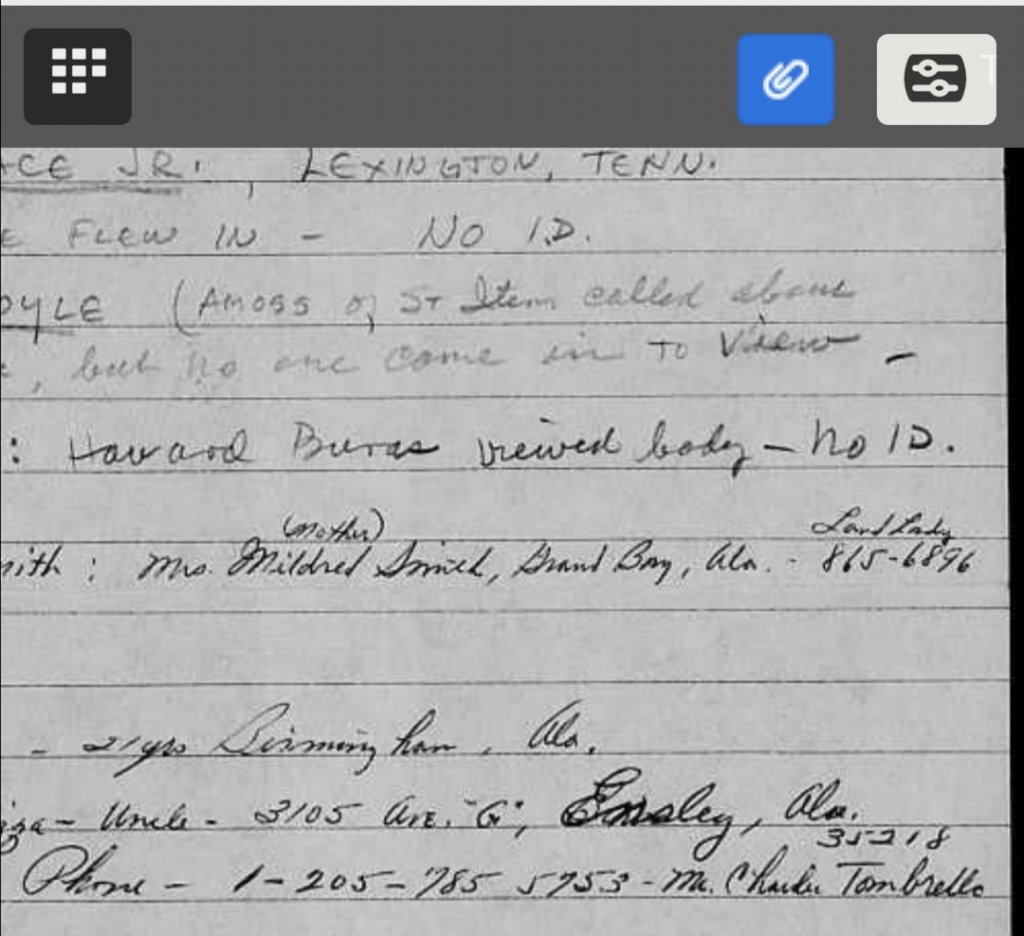 CE JR., LEXINGTON, TENN.
E FLEW IN - NO I.D.
OYLE (AMOSS of ST Item called above
, but no one came in TO View -
: Howard Buras viewed body - No ID.
(Mother) Land Lady
mith : Mrs. Mildred Smith, Grand Bay, Ala. - 865-6896
- 21 yrs Birmingham, Ala.
- Uncle - 3105 Ave. "G", Ensley, Ala.
35218
Phone - 1-205-785 5753 - Mr. Charles Tombrello